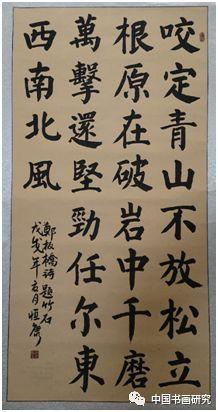 咬定青山不放松立
根原在破岩中千磨
萬擊還堅勁任尔東
西南北風
鄭板橋诗題竹石
戊戌年月恒
中国书画研究